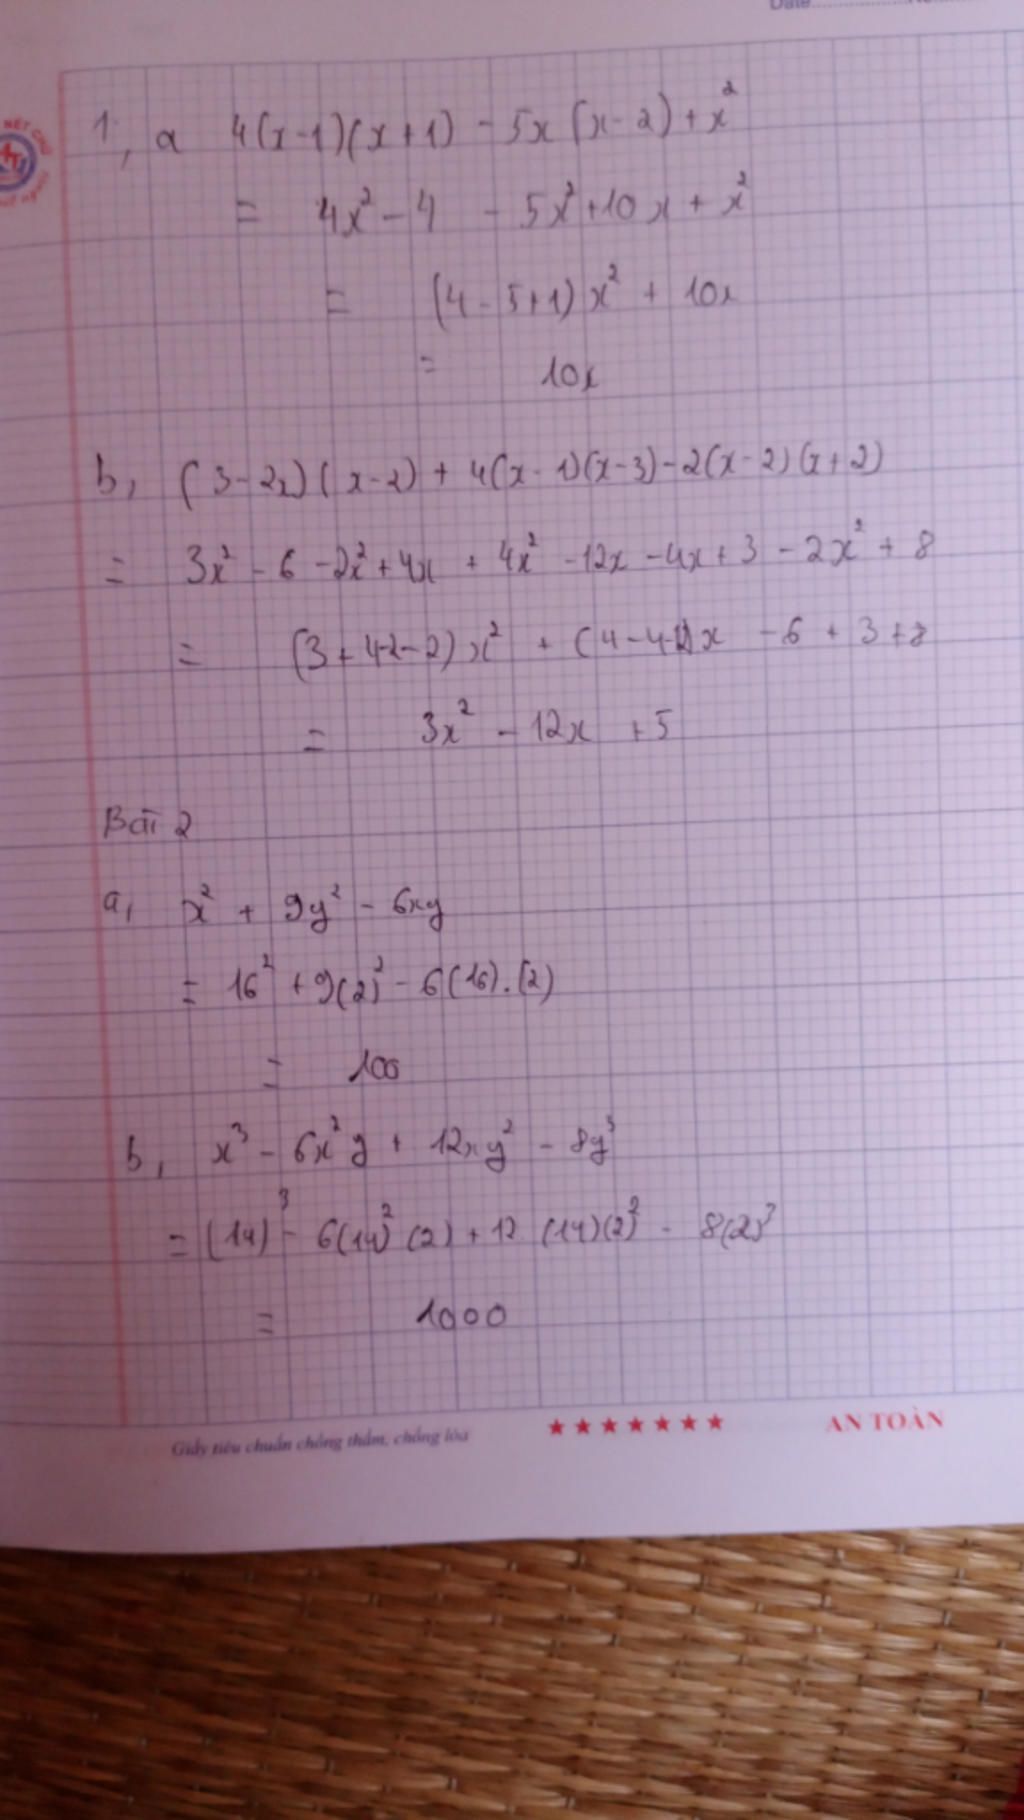 Date
1, a 4(x-1)(x+1) - 5x(x-2) + x²
= 4x² - 4 - 5x² + 10x + x²
= (4 - 5 + 1)x² + 10x
= 10x
b, (3-2x)(x-2) + 4(x-1)(x-3) - 2(x-2)(x+2)
= 3x² - 6 - 2x² + 4x + 4x² - 12x - 4x + 3 - 2x² + 8
= (3+4-2-2)x² + (4-4-12)x - 6 + 3 + 8
= 3x² - 12x + 5
Bài 2
a, x² + 9y² - 6xy
= 16² + 9(2)² - 6(16).(2)
= 100
b, x³ - 6x²y + 12xy² - 8y³
= (14)³ - 6(14)²(2) + 12(14)(2)² - 8(2)³
= 1000
Giấy tiêu chuẩn chống thấm, chống lóa ★★★★★★★ AN TOÀN